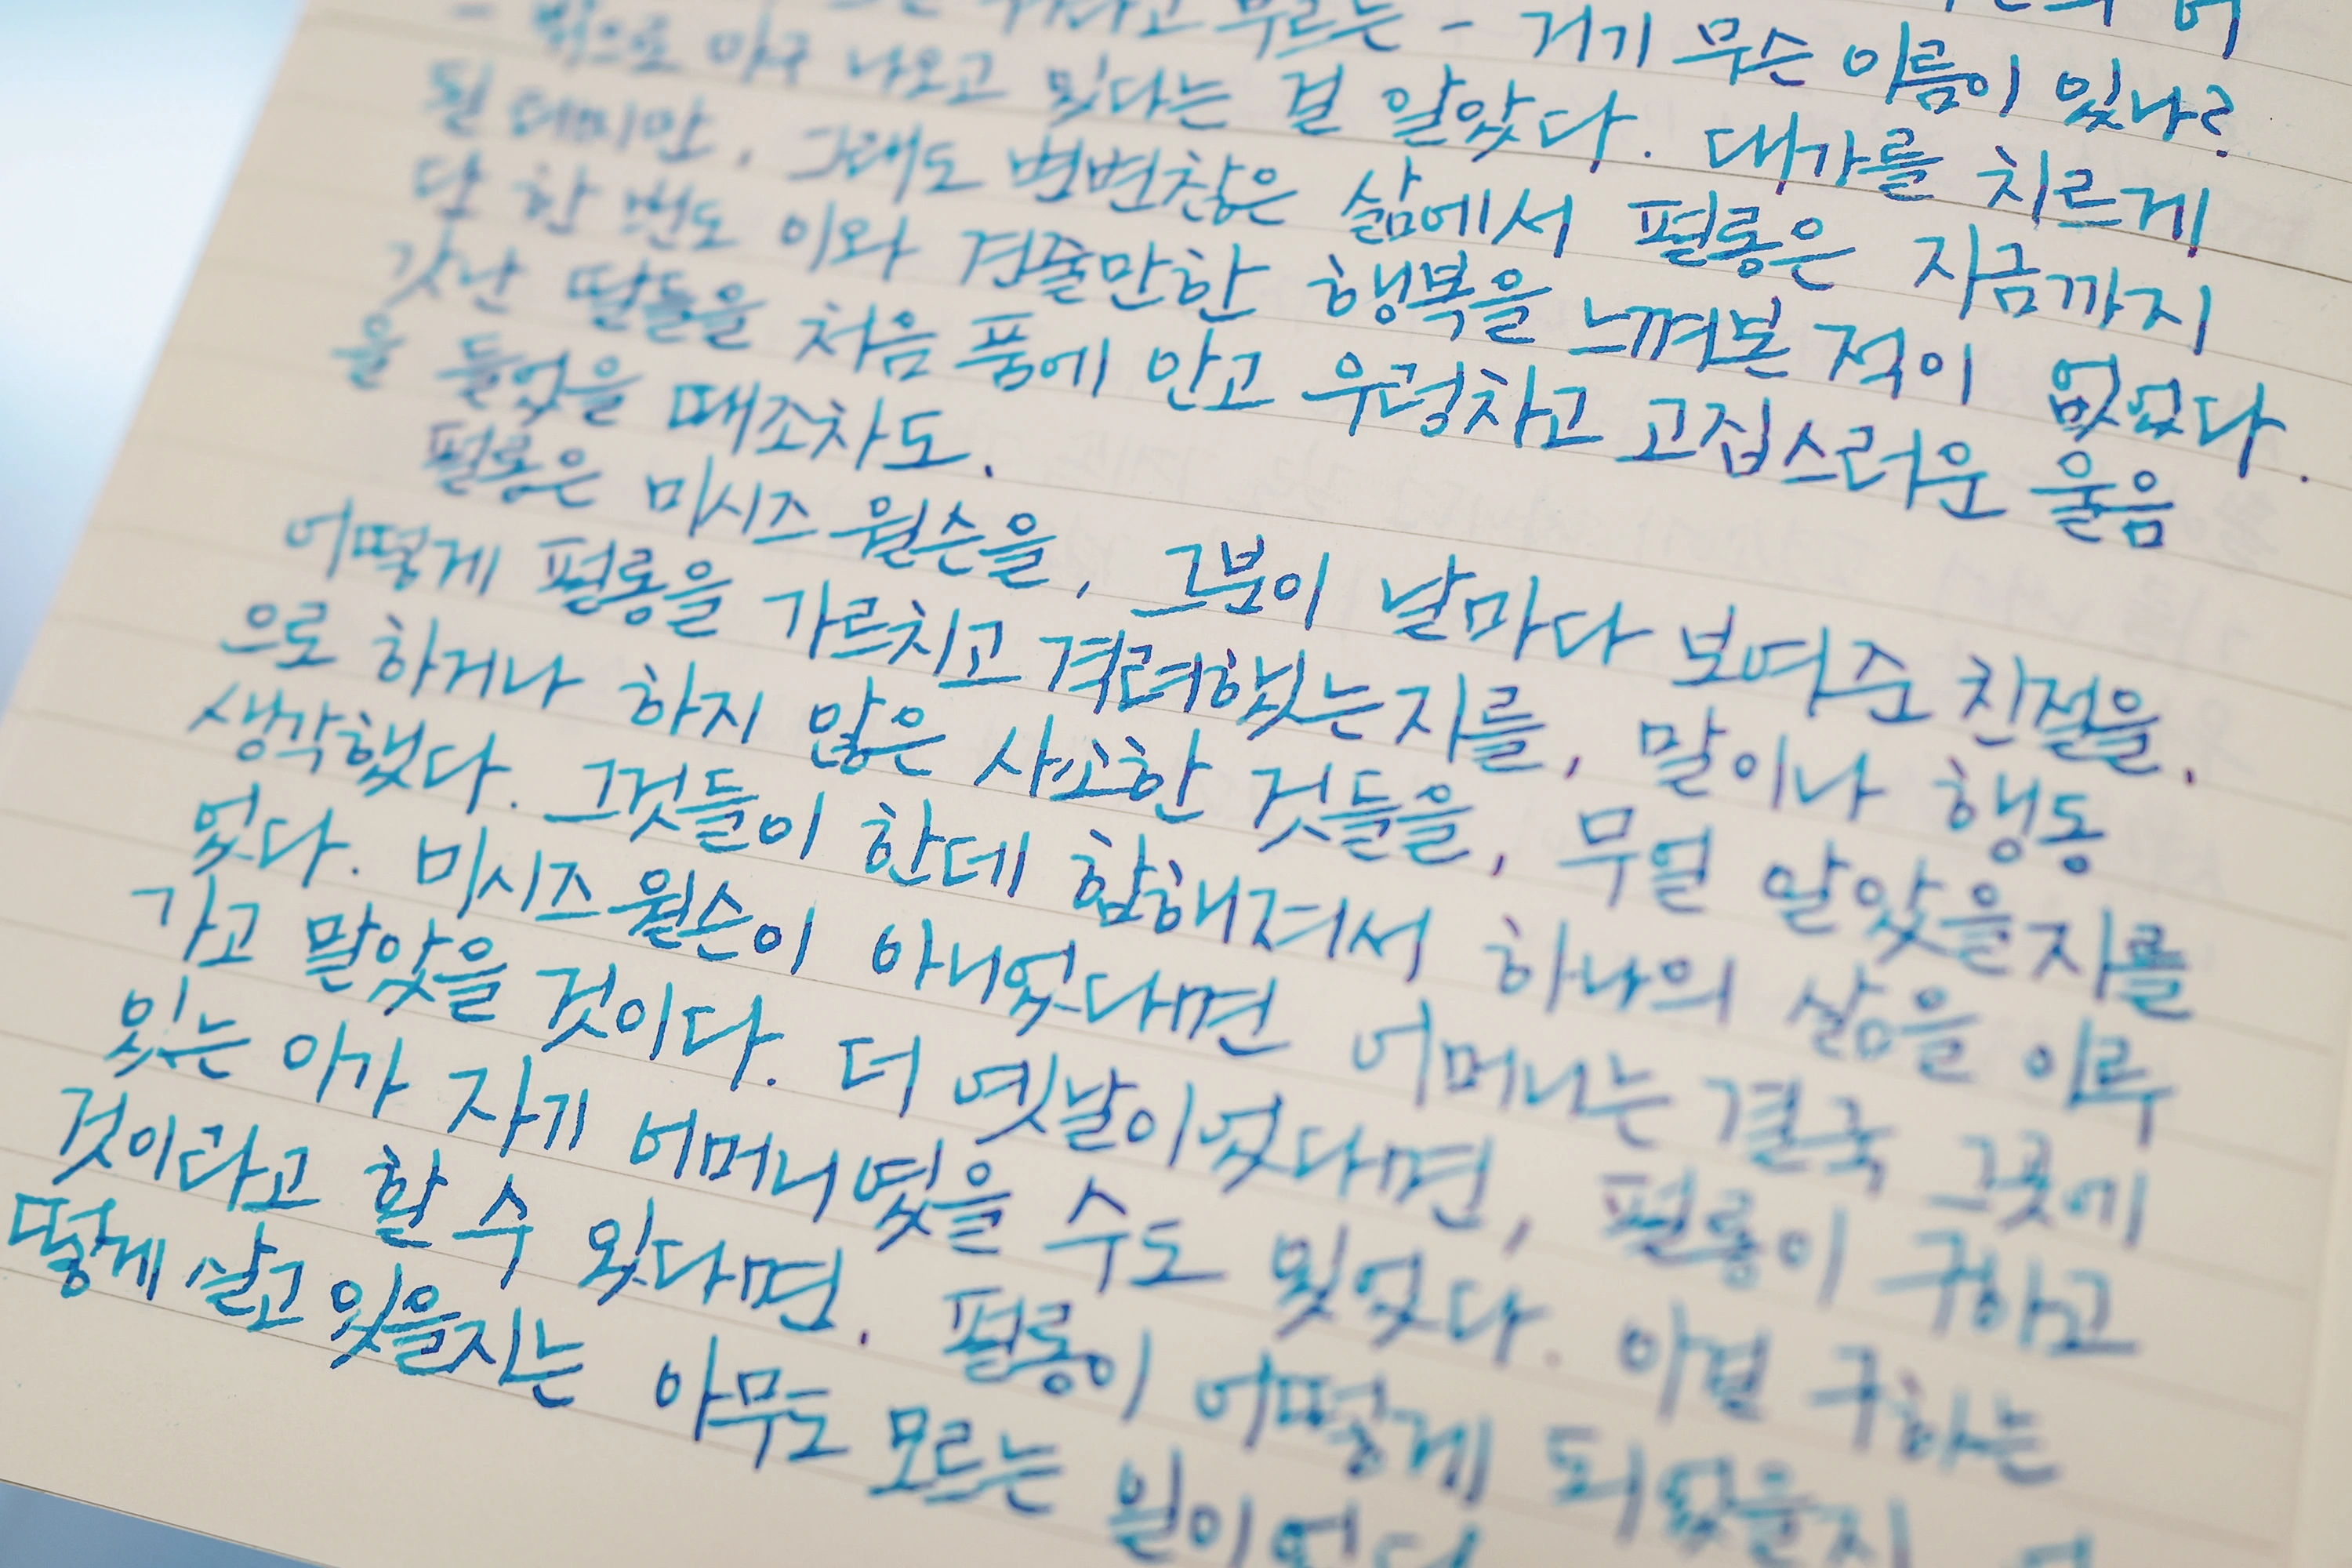 부르는 - 거기 무슨 이름이 있나?
- 밖으로 마구 나오고 있다는 걸 알았다. 대가를 치르게
될 테지만, 그래도 변변찮은 삶에서 펄롱은 지금까지
단 한 번도 이와 견줄만한 행복을 느껴본 적이 없었다.
갓난 딸들을 처음 품에 안고 우렁차고 고집스러운 울음
을 들었을 때조차도.
펄롱은 미시즈 윌슨을, 그분이 날마다 보여준 친절을,
어떻게 펄롱을 가르치고 격려했는지를, 말이나 행동
으로 하거나 하지 않은 사소한 것들을, 무얼 알았을지를
생각했다. 그것들이 한데 합해져서 하나의 삶을 이루
었다. 미시즈 윌슨이 아니었다면 어머니는 결국 그곳에
가고 말았을 것이다. 더 옛날이었다면, 펄롱이 구하고
있는 아가 자기 어머니였을 수도 있었다. 이걸 구하는
것이라고 할 수 있다면. 펄롱이 어떻게 되었을지
떻게 살고 있을지는 아무도 모르는 일이었다